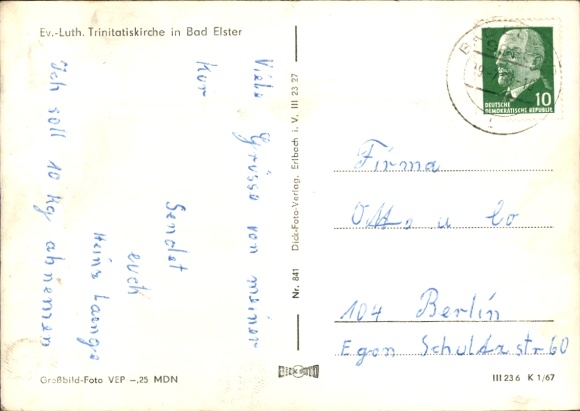 Ev.-Luth. Trinitatiskirche in Bad Elster
Viele Grüsse von meiner
Kur
Sendet
euch
Heinz Lange
Ich soll 10 Kg abnemen
Nr. 841 Dick-Foto-Verlag, Erlbach i. V. III 23 27
10
DEUTSCHE
DEMOKRATISCHE REPUBLIK
BAD
Firma
Otto u Co
104 Berlin
Egon Schulzstr 60
Großbild-Foto VEP –,25 MDN
DICK FOTO
III 23 6 K 1/67